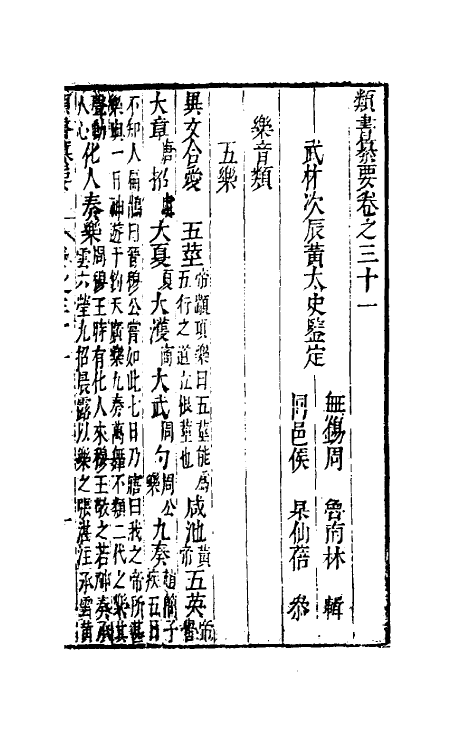 類書纂要卷之三十一
武林次辰黃太史鑒定
無錫周 魯南林 輯
同邑侯 杲仙蓓 叅
樂音類
五樂
異文合愛 五莖帝顓頊樂曰五莖能爲五行之道立根莖也 咸池黃帝 五英帝嚳
大章唐 招虞 大夏夏 大濩商 大武周 勺周公樂 九奏趙簡子疾五日
不知人扁鵲曰昔穆公嘗如此七日乃寤曰我之帝所甚
樂與百神遊于鈞天廣樂九奏萬舞不類三代之樂其
聲動人心 化人奏樂周穆王時有化人來穆王敬之若神奏承
雲六瑩九招晨露以樂之張湛注承雲黃